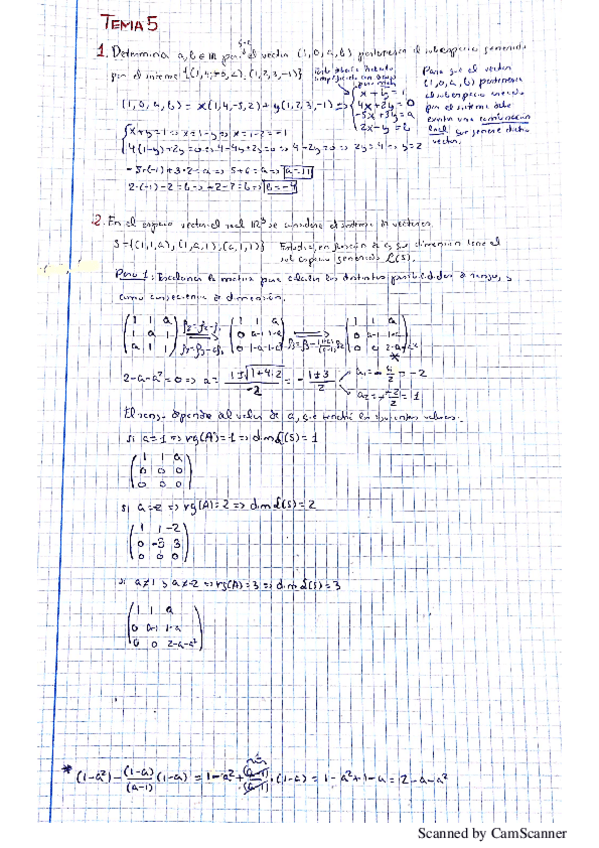 TEMA 5
1. Determina a, b ∈ R para q el vector (1, 0, a, b) pertenezca al subespacio generado
por el sistema {(1, 4, -5, 2), (1, 2, 3, -1)}
Para que el vector
(1, 0, a, b) pertenezca
al subespacio
por el sistema debe
existir una combinación
lineal que genere dicho
vector.
(1, 0, a, b) = x(1, 4, -5, 2) + y(1, 2, 3, -1) => { x + y = 1
4x + 2y = 0
-5x + 3y = a
2x - y = b
{ x + y = 1 => x = 1 - y => x = 1 - 2 = -1
4(1-y) + 2y = 0 => 4 - 4y + 2y = 0 => 4 - 2y = 0 => 2y = 4 -> y = 2
-5·(-1) + 3·2 = a => 5 + 6 = a => a = 11
2·(-1) - 2 = b => -2 - 2 = b => b = -4
2. En el espacio vectorial real R³ se considera el sistema de vectores
S = {(1, 1, a), (1, a, 1), (a, 1, 1)} Estudia, en función de a, que dimensión tiene el
subespacio generado L(S).
Paso 1: Escalonar la matriz para calcular las distintas posibilidades de rango, y
como consecuencia de dimensión.
( 1 1 a
1 a 1
a 1 1 )
( 1 1 a
0 a-1 1-a
0 1-a 1-a² )
( 1 1 a
0 a-1 1-a
0 0 2-a-a² )
*
2 - a - a² = 0 => a = 1±√(1+4·2) / -2 = - 1±3 / 2
a₁ = -4/2 = -2
a₂ = -(-2)/2 = 1
El rango depende del valor de a, que tendrá los siguientes valores:
si a = 1 => rg(A) = 1 => dim L(S) = 1
( 1 1 a
0 0 0
0 0 0 )
si a = -2 => rg(A) = 2 => dim L(S) = 2
( 1 1 -2
0 -3 3
0 0 0 )
si a ≠ 1 y a ≠ -2 => rg(A) = 3 => dim L(S) = 3
( 1 1 a
0 a-1 1-a
0 0 2-a-a² )
* (1-a²) - (1-a)/(a-1) (1-a) = 1 - a² + (a-1)/(a-1) · (1-a) = 1 - a² + 1 - a = 2 - a - a²
Scanned by CamScanner